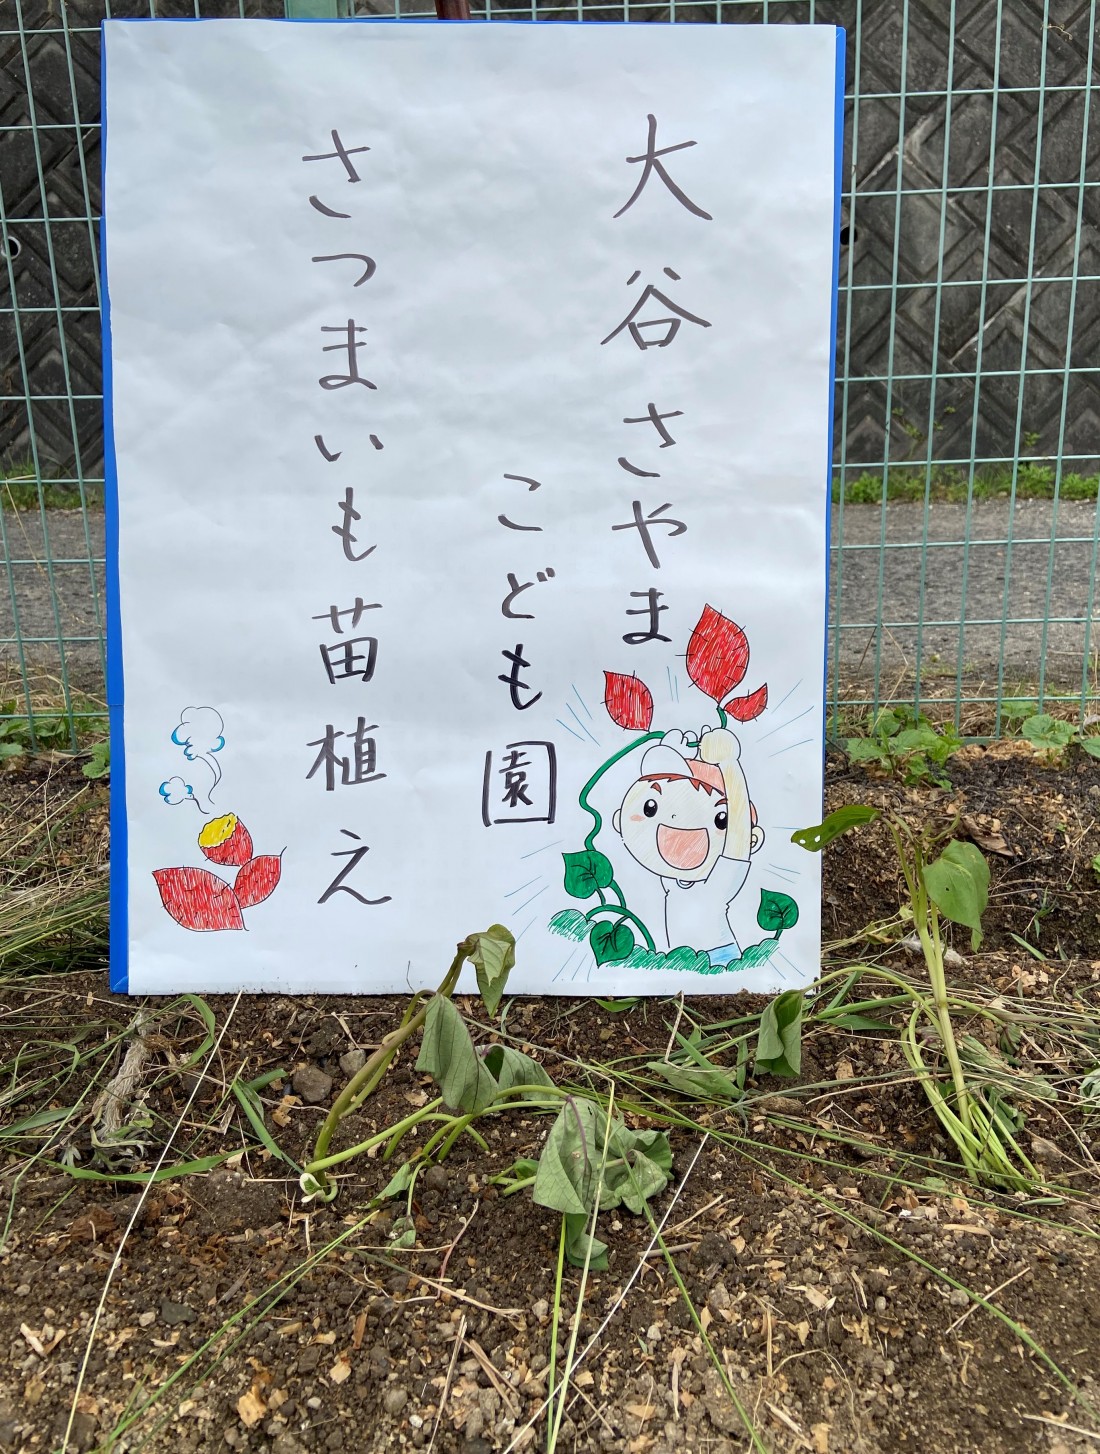 大谷さやま
こども園
さつまいも苗植え